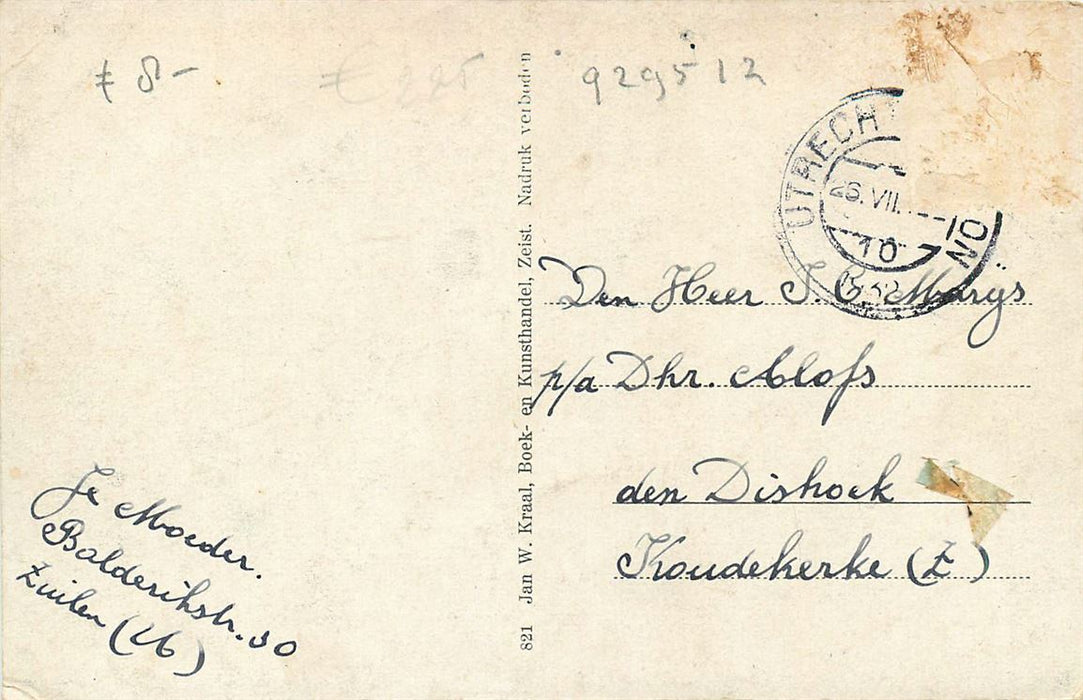 ƒ 8-
€ 225
929512
UTRECHT
26.VII.
10
1932
NO
Den Heer J. C. Marijs
p/a Dhr. Alofs
den Dishoek
Koudekerke (Z)
Je Moeder.
Balderikstr. 30
Zuilen (U)
821 Jan W. Kraal, Boek- en Kunsthandel, Zeist. Nadruk verboden